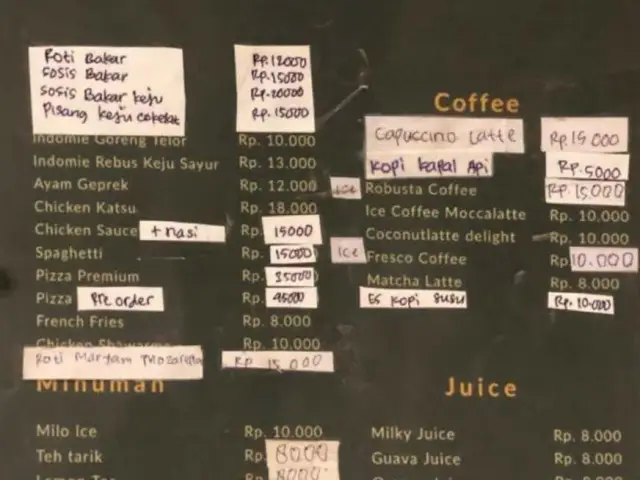 Roti Bakar Rp.12000
Sosis Bakar Rp.15000
Sosis Bakar keju Rp.20000
Pisang keju cokelat Rp.15000
Indomie Goreng Telor Rp. 10.000
Indomie Rebus Keju Sayur Rp. 13.000
Ayam Geprek Rp. 12.000
Chicken Katsu Rp. 18.000
Chicken Sauce + nasi Rp. 15000
Spaghetti Rp. 15000
Pizza Premium Rp.
Pizza Pre order Rp.
French Fries Rp. 8.000
Chicken Shawarma Rp. 10.000
Roti Maryam Mozarella Rp 15.000
Minuman
Milo Ice Rp. 10.000
Teh tarik Rp. 8000
Lemon Tea 8000
Coffee
Capuccino Latte Rp.15.000
Kopi kapal Api Rp.5000
Ice Robusta Coffee Rp.15.000
Ice Coffee Moccalatte Rp. 10.000
Coconutlatte delight Rp. 10.000
Ice Fresco Coffee Rp. 10.000
Matcha Latte Rp. 8.000
Es kopi susu Rp. 10.000
Juice
Milky Juice Rp. 8.000
Guava Juice Rp. 8.000
Rp. 8.000